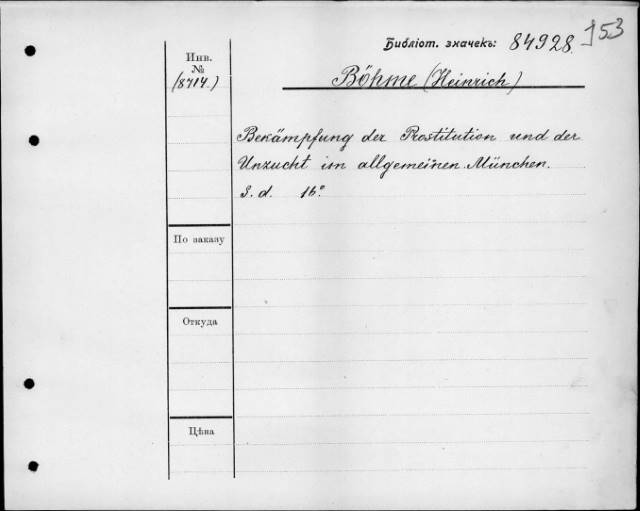 Библіот. значекъ: 84928. 153
Инв.
№
(8714.)
Böhme (Heinrich)
Bekämpfung der Prostitution und der
Unzucht im allgemeinen. München.
S. d. 16°
По заказу
Откуда
Цѣна